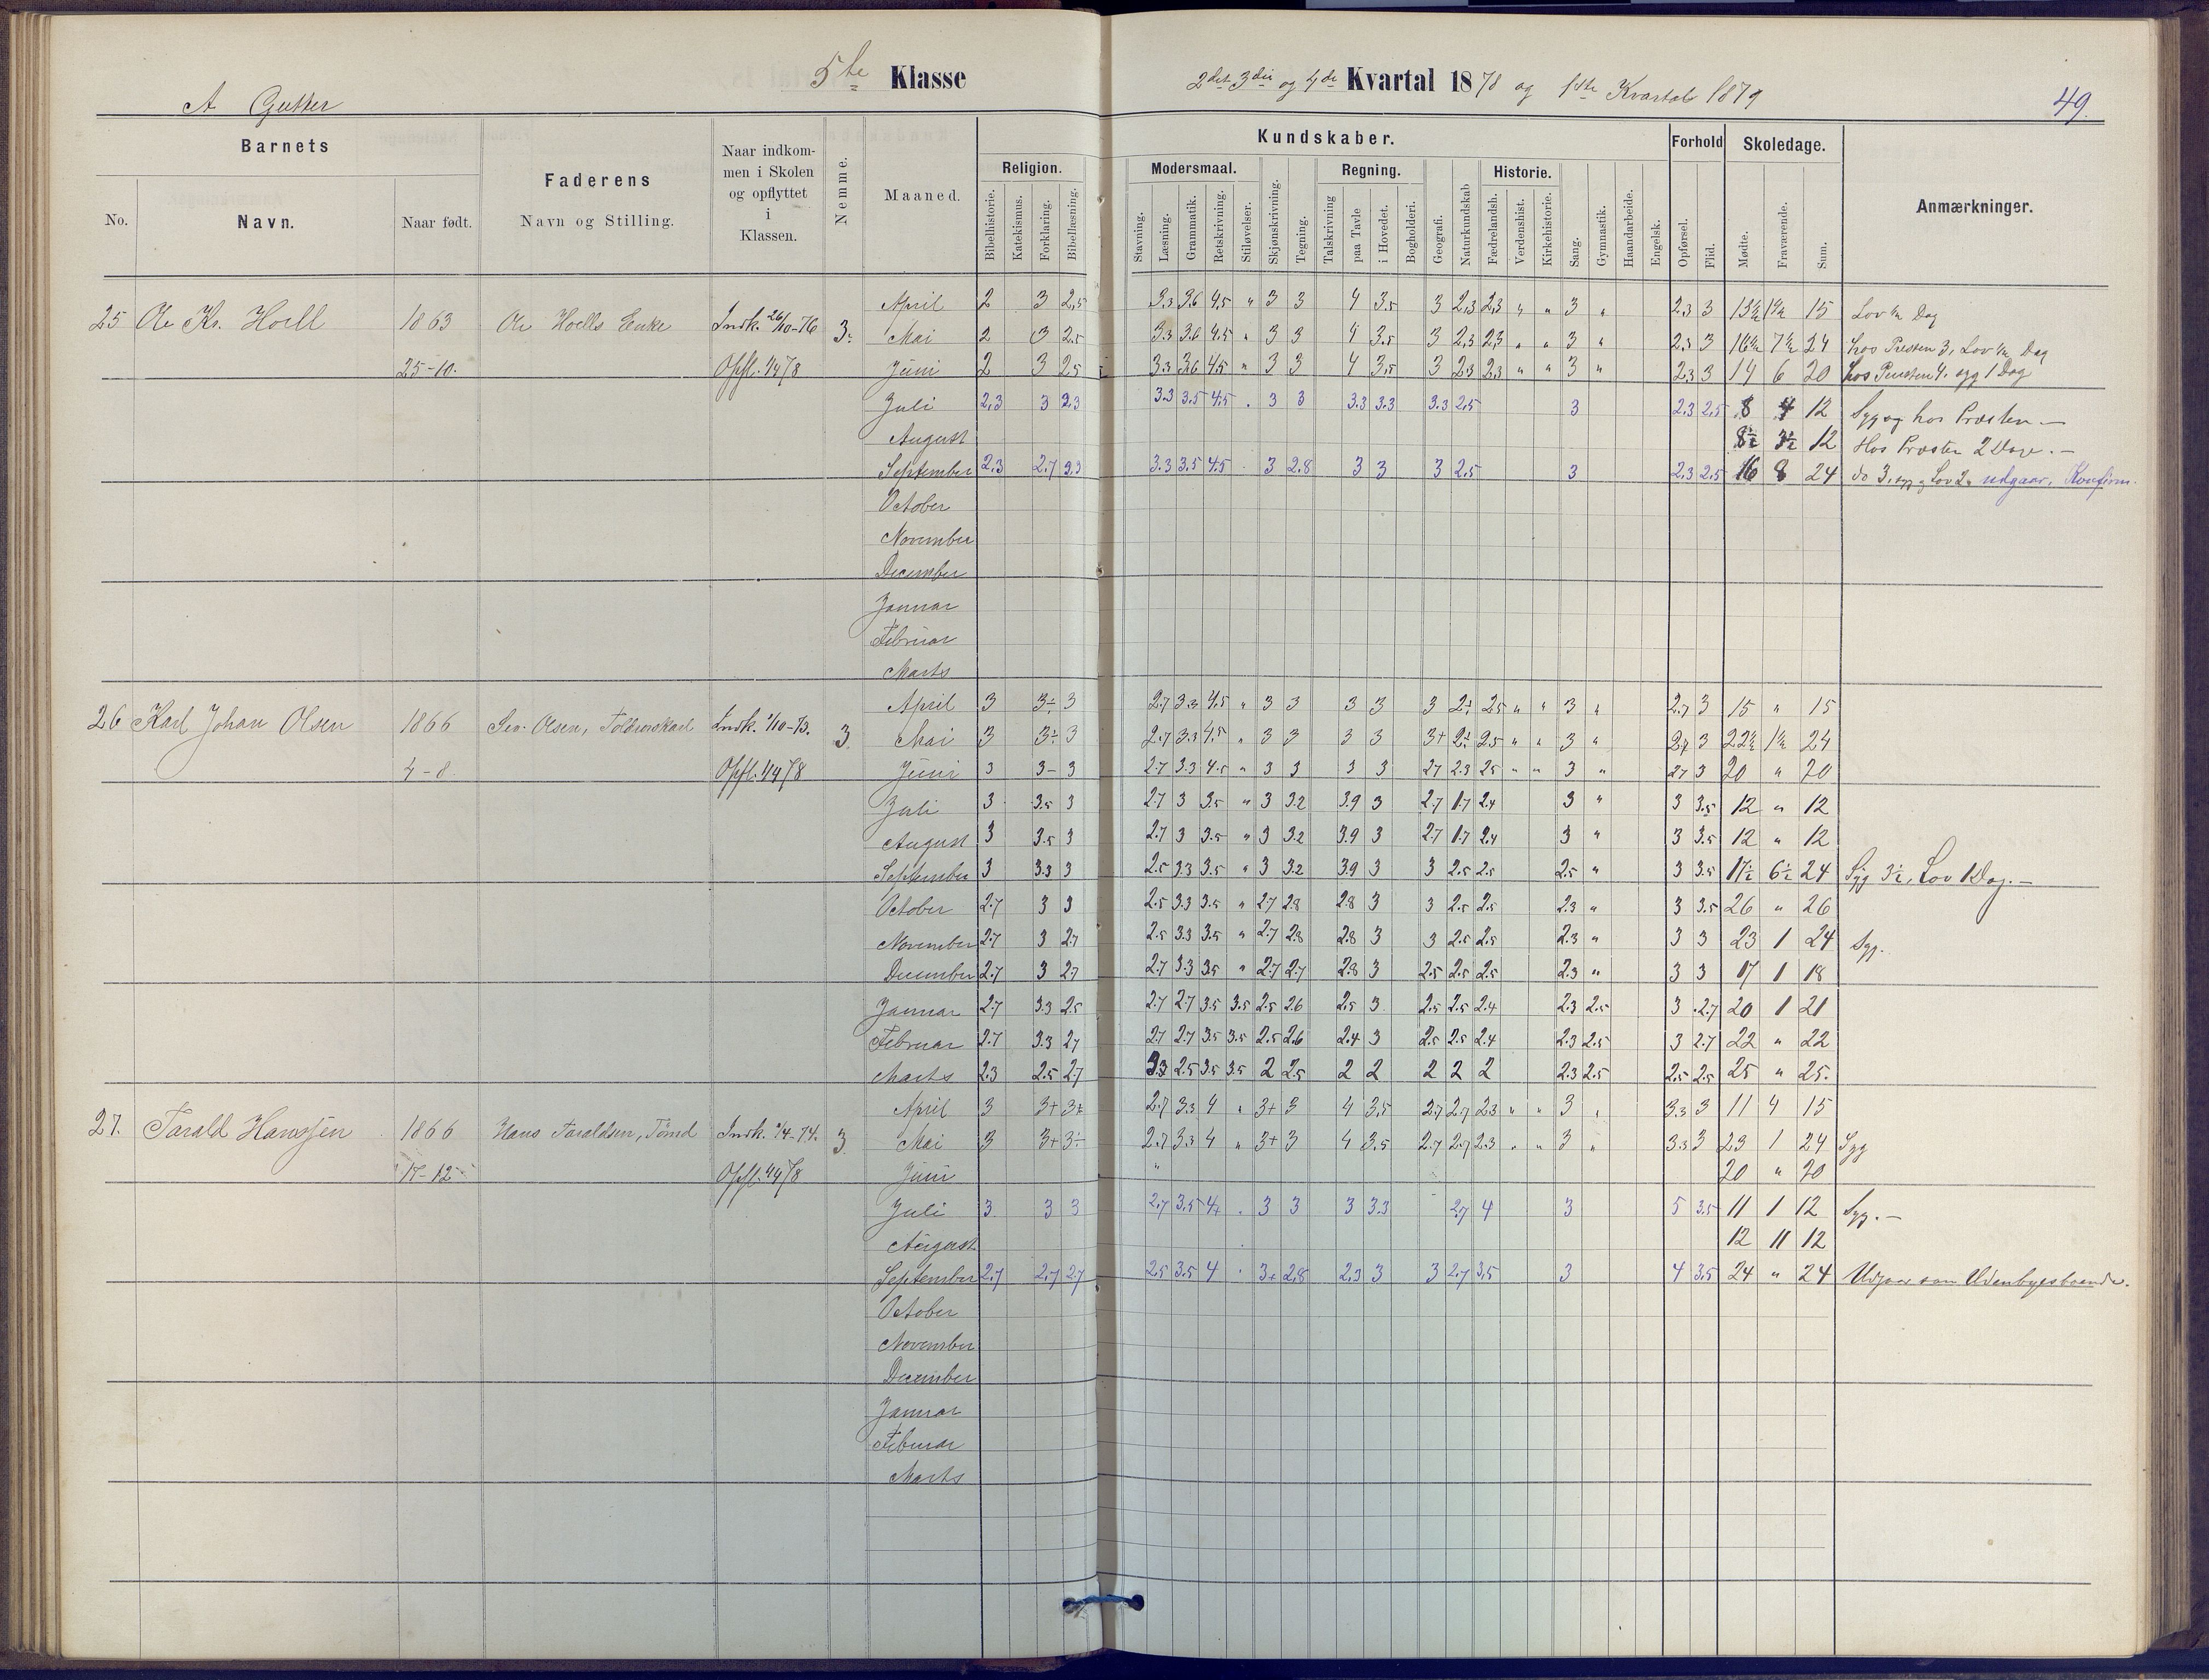 5te Klasse
2det 3die og 4de Kvartal 1878 og 1ste Kvartal 1879
A Gutter
49.
Barnets
No.
Navn.
Naar født.
Faderens
Navn og Stilling.
Naar indkom-
men i Skolen
og opflyttet
i
Klassen.
Nemme.
Maaned.
Kundskaber.
Religion.
Bibelhistorie.
Katekismus.
Forklaring.
Bibellæsning.
Modersmaal.
Stavning.
Læsning.
Grammatik.
Retskrivning.
Stiløvelser.
Skjønskrivning.
Tegning.
Regning.
Talskrivning
paa Tavle
i Hovedet.
Bogholderi.
Geografi.
Naturkundskab
Historie.
Fædrelandsh.
Verdenshist.
Kirkehistorie.
Sang.
Gymnastik.
Haandarbeide.
Engelsk.
Forhold
Opførsel.
Flid.
Skoledage.
Mødte.
Fraværende.
Sum.
Anmærkninger.
25 Ole Kr. Hoell 1863 Ole Hoells Enke Indk. 26/10-76 3÷
25-10. Opfl. 1/4 78
April 2 3 2,5 3.3 3.6 4.5 " 3 3 4 3.5 3 2,3 2,3 " " 3 " 2,3 3 13½ 1½ 15 Lov ½ Dag
Mai 2 3 2.5 3.3 3.6 4.5 " 3 3 4 3.5 3 2,3 2,3 " " 3 " 2.3 3 16½ 7½ 24 hos Presten 3, Lov ½ Dag
Juni 2 3 2.5 3.3 3.6 4.5 " 3 3 4 3.5 3 2.3 2.3 " " 3 " 2.3 3 14 6 20 hos Presten 4. syg 1 Dag
Juli 2,3 3 2.3 3.3 3.5 4.5 . 3 3 3.3 3.3 3.3 2.5 3 2.3 2.5 8 4 12 Syg og hos Præsten.—
August 8½ 3½ 12 Hos Præsten 2 Dage.—
September 2,3 2.7 2.3 3.3 3.5 4.5 . 3 2.8 3 3 3 2.5 3 2.3 2.5 16 8 24 do 3, syg og Lov 2. udgaar. Konfirm.
October
November
December
Januar
Februar
Marts
26 Karl Johan Olsen 1866 Sev. Olsen, Toldroerskarl Indk. 1/10-73. 3.
4-8 Opfl. 1/4 78
April 3 3÷ 3 2.7 3.3 4.5 " 3 3 3 3 3 2÷ 2.5 " " 3 " 2.7 3 15 " 15
Mai 3 3÷ 3 2.7 3.3 4.5 " 3 3 3 3 3+ 2÷ 2.5 " " 3 " 2.7 3 22½ 1½ 24
Juni 3 3- 3 2.7 3.3 4.5 " 3 3 3 3 2.7 2.3 2.5 " " 3 " 2.7 3 20 " 20
Juli 3 3.5 3 2.7 3 3.5 " 3 3.2 3.9 3 2.7 1.7 2.4 3 " 3 3.5 12 " 12
August 3 3.5 3 2.7 3 3.5 " 3 3.2 3.9 3 2.7 1.7 2.4 3 " 3 3.5 12 " 12
September 3 3.3 3 2.5 3.3 3.5 " 3 3.2 3.9 3 3 2.5 2.5 2.5 " 3 3.5 17½ 6½ 24 Syg 3½, Lov 1 Dag.—
October 2.7 3 3 2.5 3.3 3.5 " 2.7 2.8 2.8 3 3 2.5 2.5 2.3 " 3 3.5 26 " 26
November 2.7 3 2.7 2.5 3.3 3.5 " 2.7 2.8 2.8 3 3 2.5 2.5 2.3 " 3 3 23 1 24 Syg.
December 2.7 3 2.7 2.7 3.3 3.5 " 2.7 2.7 2.8 3 2.5 2.5 2.5 2.3 " 3 3 17 1 18
Januar 2.7 3.3 2.5 2.7 2.7 3.5 3.5 2.5 2.6 2.5 3 2.5 2.5 2.4 2.3 2.5 3 2.7 20 1 21
Februar 2.7 3.3 2.7 2.7 2.7 3.5 3.5 2.5 2.6 2.4 3 2.5 2.5 2.4 2.3 2.5 3 2.7 22 " 22
Marts 2.3 2.5 2.7 3.3 2.5 3.5 3.5 2 2.5 2 2 2 2 2 2.3 2.5 2.5 2.5 25 " 25.
27. Tarald Hanssen 1866 Hans Taraldsen, Tømd Indk. 1/4-74. 3.
17-12 Opfl. 1/4 78
April 3 3+ 3÷ 2.7 3.3 4 " 3+ 3 4 3.5 2.7 2.7 2.3 " " 3 " 3.3 3 11 4 15
Mai 3 3+ 3÷ 2.7 3.3 4 " 3+ 3 4 3.5 2.7 2.7 2.3 " " 3 " 3.3 3 23 1 24 Syg
Juni " 20 " 20
Juli 3 3 3 2.7 3.5 4+ . 3 3 3 3.3 2.7 4 3 5 3.5 11 1 12 Syg.—
August 12 " 12
September 2.7 2.7 2.7 2.5 3.5 4 . 3+ 2.8 2.3 3 3 2.7 3.5 3 4 3.5 24 " 24 Udgaar som Udenbysboende.
October
November
December
Januar
Februar
Marts